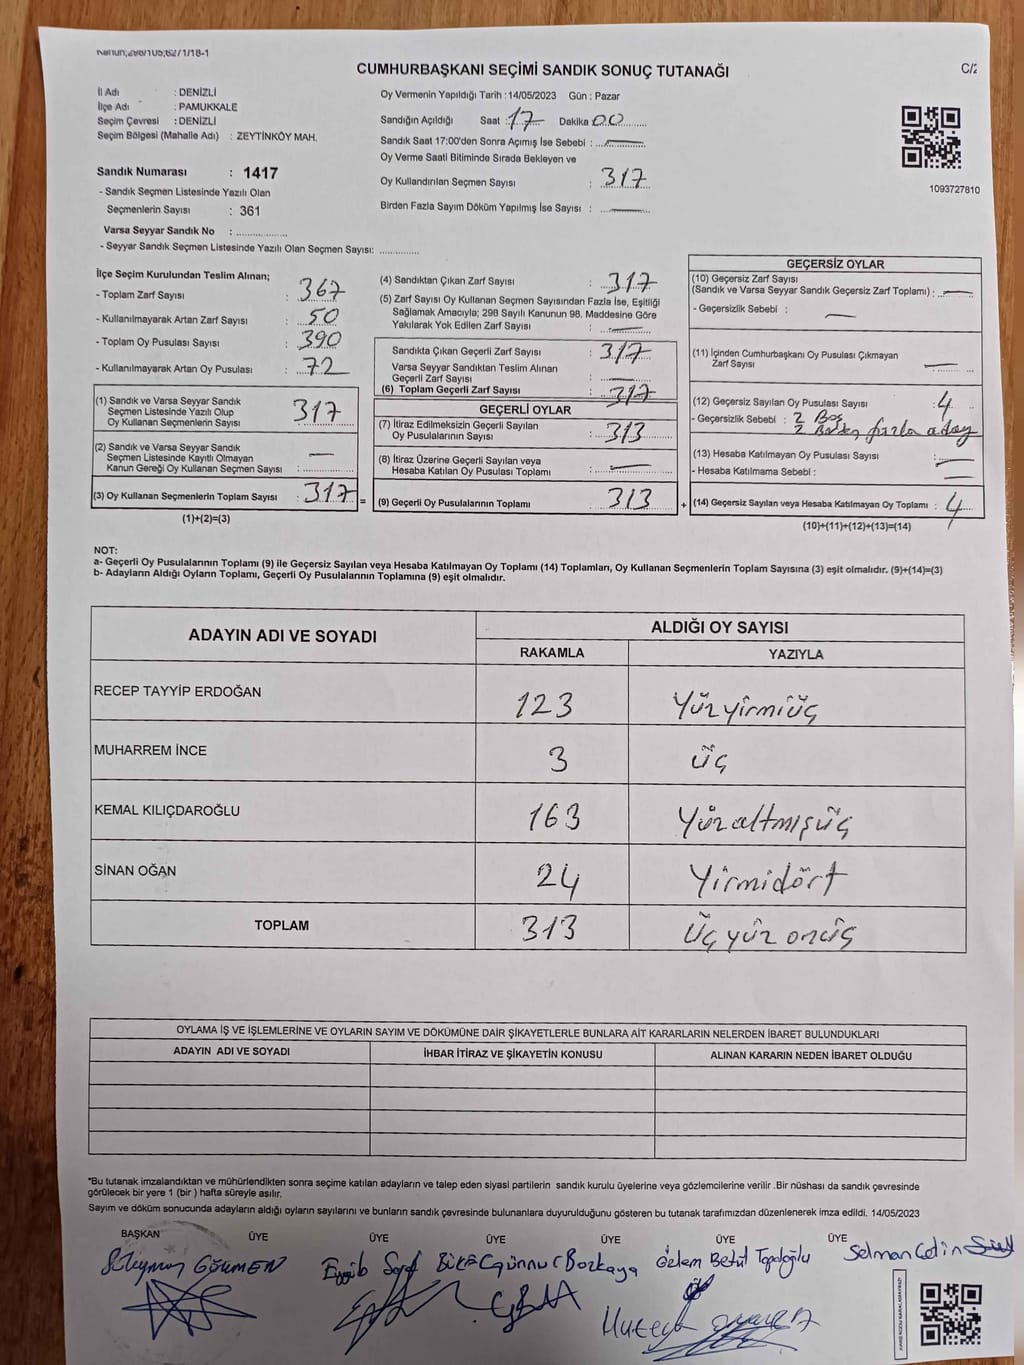 Kanun;298/105;6271/18-1
CUMHURBAŞKANI SEÇİMİ SANDIK SONUÇ TUTANAĞI
C/2
İl Adı : DENİZLİ
İlçe Adı : PAMUKKALE
Seçim Çevresi : DENİZLİ
Seçim Bölgesi (Mahalle Adı) : ZEYTİNKÖY MAH.
Sandık Numarası : 1417
- Sandık Seçmen Listesinde Yazılı Olan
Seçmenlerin Sayısı : 361
Varsa Seyyar Sandık No : ..............
- Seyyar Sandık Seçmen Listesinde Yazılı Olan Seçmen Sayısı: ............
Oy Vermenin Yapıldığı Tarih : 14/05/2023 Gün : Pazar
Sandığın Açıldığı Saat : 17 Dakika 00
Sandık Saat 17:00'den Sonra Açımış İse Sebebi : —
Oy Verme Saati Bitiminde Sırada Bekleyen ve
Oy Kullandırılan Seçmen Sayısı : 317
Birden Fazla Sayım Döküm Yapılmış İse Sayısı : —
1093727810
İlçe Seçim Kurulundan Teslim Alınan;
- Toplam Zarf Sayısı : 367
- Kullanılmayarak Artan Zarf Sayısı : 50
- Toplam Oy Pusulası Sayısı : 390
- Kullanılmayarak Artan Oy Pusulası : 72
(1) Sandık ve Varsa Seyyar Sandık
Seçmen Listesinde Yazılı Olup
Oy Kullanan Seçmenlerin Sayısı : 317
(2) Sandık ve Varsa Seyyar Sandık
Seçmen Listesinde Kayıtlı Olmayan
Kanun Gereği Oy Kullanan Seçmen Sayısı : —
(3) Oy Kullanan Seçmenlerin Toplam Sayısı : 317 =
(1)+(2)=(3)
(4) Sandıktan Çıkan Zarf Sayısı : 317
(5) Zarf Sayısı Oy Kullanan Seçmen Sayısından Fazla İse, Eşitliği
Sağlamak Amacıyla; 298 Sayılı Kanunun 98. Maddesine Göre
Yakılarak Yok Edilen Zarf Sayısı : —
Sandıkta Çıkan Geçerli Zarf Sayısı : 317
Varsa Seyyar Sandıktan Teslim Alınan
Geçerli Zarf Sayısı : —
(6) Toplam Geçerli Zarf Sayısı : 317
GEÇERLİ OYLAR
(7) İtiraz Edilmeksizin Geçerli Sayılan
Oy Pusulalarının Sayısı : 313
(8) İtiraz Üzerine Geçerli Sayılan veya
Hesaba Katılan Oy Pusulası Toplamı : —
(9) Geçerli Oy Pusulalarının Toplamı : 313 +
GEÇERSİZ OYLAR
(10) Geçersiz Zarf Sayısı
(Sandık ve Varsa Seyyar Sandık Geçersiz Zarf Toplamı) : —
- Geçersizlik Sebebi : —
(11) İçinden Cumhurbaşkanı Oy Pusulası Çıkmayan
Zarf Sayısı : —
(12) Geçersiz Sayılan Oy Pusulası Sayısı : 4
- Geçersizlik Sebebi : 2 Boş
2 Birden fazla aday
(13) Hesaba Katılmayan Oy Pusulası Sayısı : —
- Hesaba Katılmama Sebebi : —
(14) Geçersiz Sayılan veya Hesaba Katılmayan Oy Toplamı : 4
(10)+(11)+(12)+(13)=(14)
NOT:
a- Geçerli Oy Pusulalarının Toplamı (9) ile Geçersiz Sayılan veya Hesaba Katılmayan Oy Toplamı (14) Toplamları, Oy Kullanan Seçmenlerin Toplam Sayısına (3) eşit olmalıdır. (9)+(14)=(3)
b- Adayların Aldığı Oyların Toplamı, Geçerli Oy Pusulalarının Toplamına (9) eşit olmalıdır.
ADAYIN ADI VE SOYADI ALDIĞI OY SAYISI
RAKAMLA YAZIYLA
RECEP TAYYİP ERDOĞAN 123 Yüzyirmiüç
MUHARREM İNCE 3 üç
KEMAL KILIÇDAROĞLU 163 Yüzaltmışüç
SİNAN OĞAN 24 Yirmidört
TOPLAM 313 Üçyüzonüç
OYLAMA İŞ VE İŞLEMLERİNE VE OYLARIN SAYIM VE DÖKÜMÜNE DAİR ŞİKAYETLERLE BUNLARA AİT KARARLARIN NELERDEN İBARET BULUNDUKLARI
ADAYIN ADI VE SOYADI İHBAR İTİRAZ VE ŞİKAYETİN KONUSU ALINAN KARARIN NEDEN İBARET OLDUĞU
*Bu tutanak imzalandıktan ve mühürlendikten sonra seçime katılan adayların ve talep eden siyasi partilerin sandık kurulu üyelerine veya gözlemcilerine verilir .Bir nüshası da sandık çevresinde
görülecek bir yere 1 (bir ) hafta süreyle asılır.
Sayım ve döküm sonucunda adayların aldığı oyların sayılarını ve bunların sandık çevresinde bulunanlara duyurulduğunu gösteren bu tutanak tarafımızdan düzenlenerek imza edildi. 14/05/2023
BAŞKAN ÜYE ÜYE ÜYE ÜYE ÜYE ÜYE
Süleyman GÖÇMEN Eyyib Büke Günnur Bozkaya Özlem Betül Topaloğlu Selman Çetin